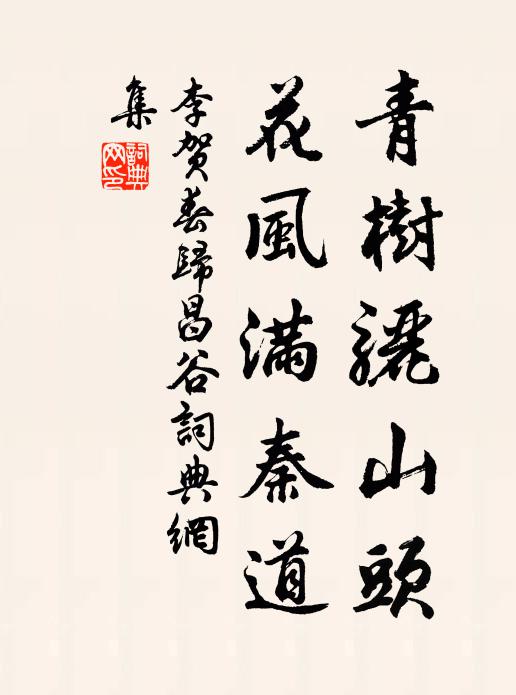 青樹驪山頭
花風滿秦道
李賀春歸昌谷詞典網
集
詞典網印